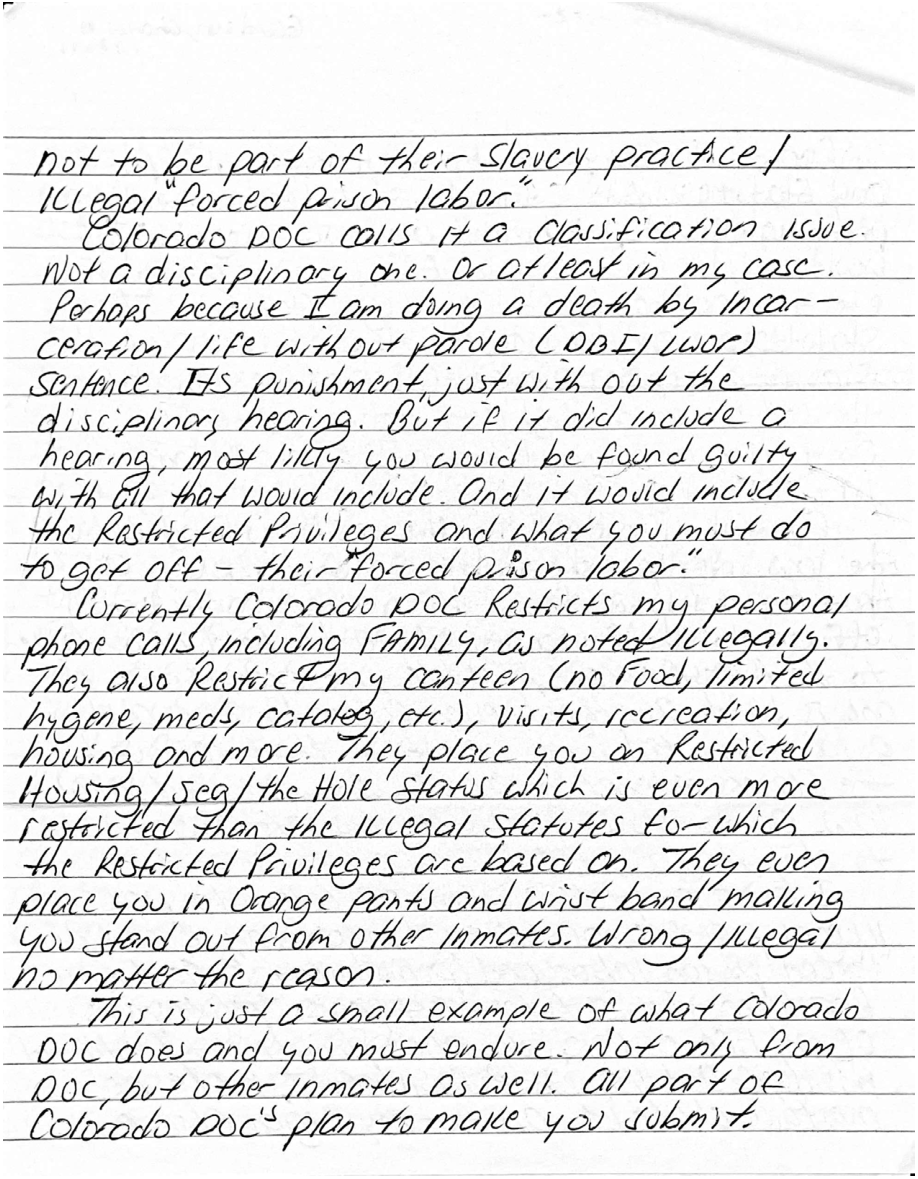 not to be part of their Slavery practice/
Illegal "forced prison labor."
Colorado DOC calls it a Classification issue.
Not a disciplinary one. Or at least in my case.
Perhaps because I am doing a death by Incar-
ceration/life without parole (DBI/LWOP)
sentence. Its punishment, just with out the
disciplinary hearing. But if it did include a
hearing, most likly you would be found guilty
with all that would include. And it would include
the Restricted Privileges and what you must do
to get off - their "forced prison labor."
Currently Colorado DOC Restricts my personal
phone calls, including FAMILY, as noted Illegally.
They also Restrict my canteen (no Food, limited
hygene, meds, catalog, etc.), visits, recreation,
housing and more. They place you on Restricted
Housing/Seg/the Hole Status which is even more
restricted than the Illegal Statutes for which
the Restricted Privileges are based on. They even
place you in Orange pants and wrist band making
you stand out from other Inmates. Wrong/Illegal
no matter the reason.
This is just a small example of what Colorado
DOC does and you must endure. Not only from
DOC, but other Inmates as well. All part of
Colorado DOC's plan to make you submit.